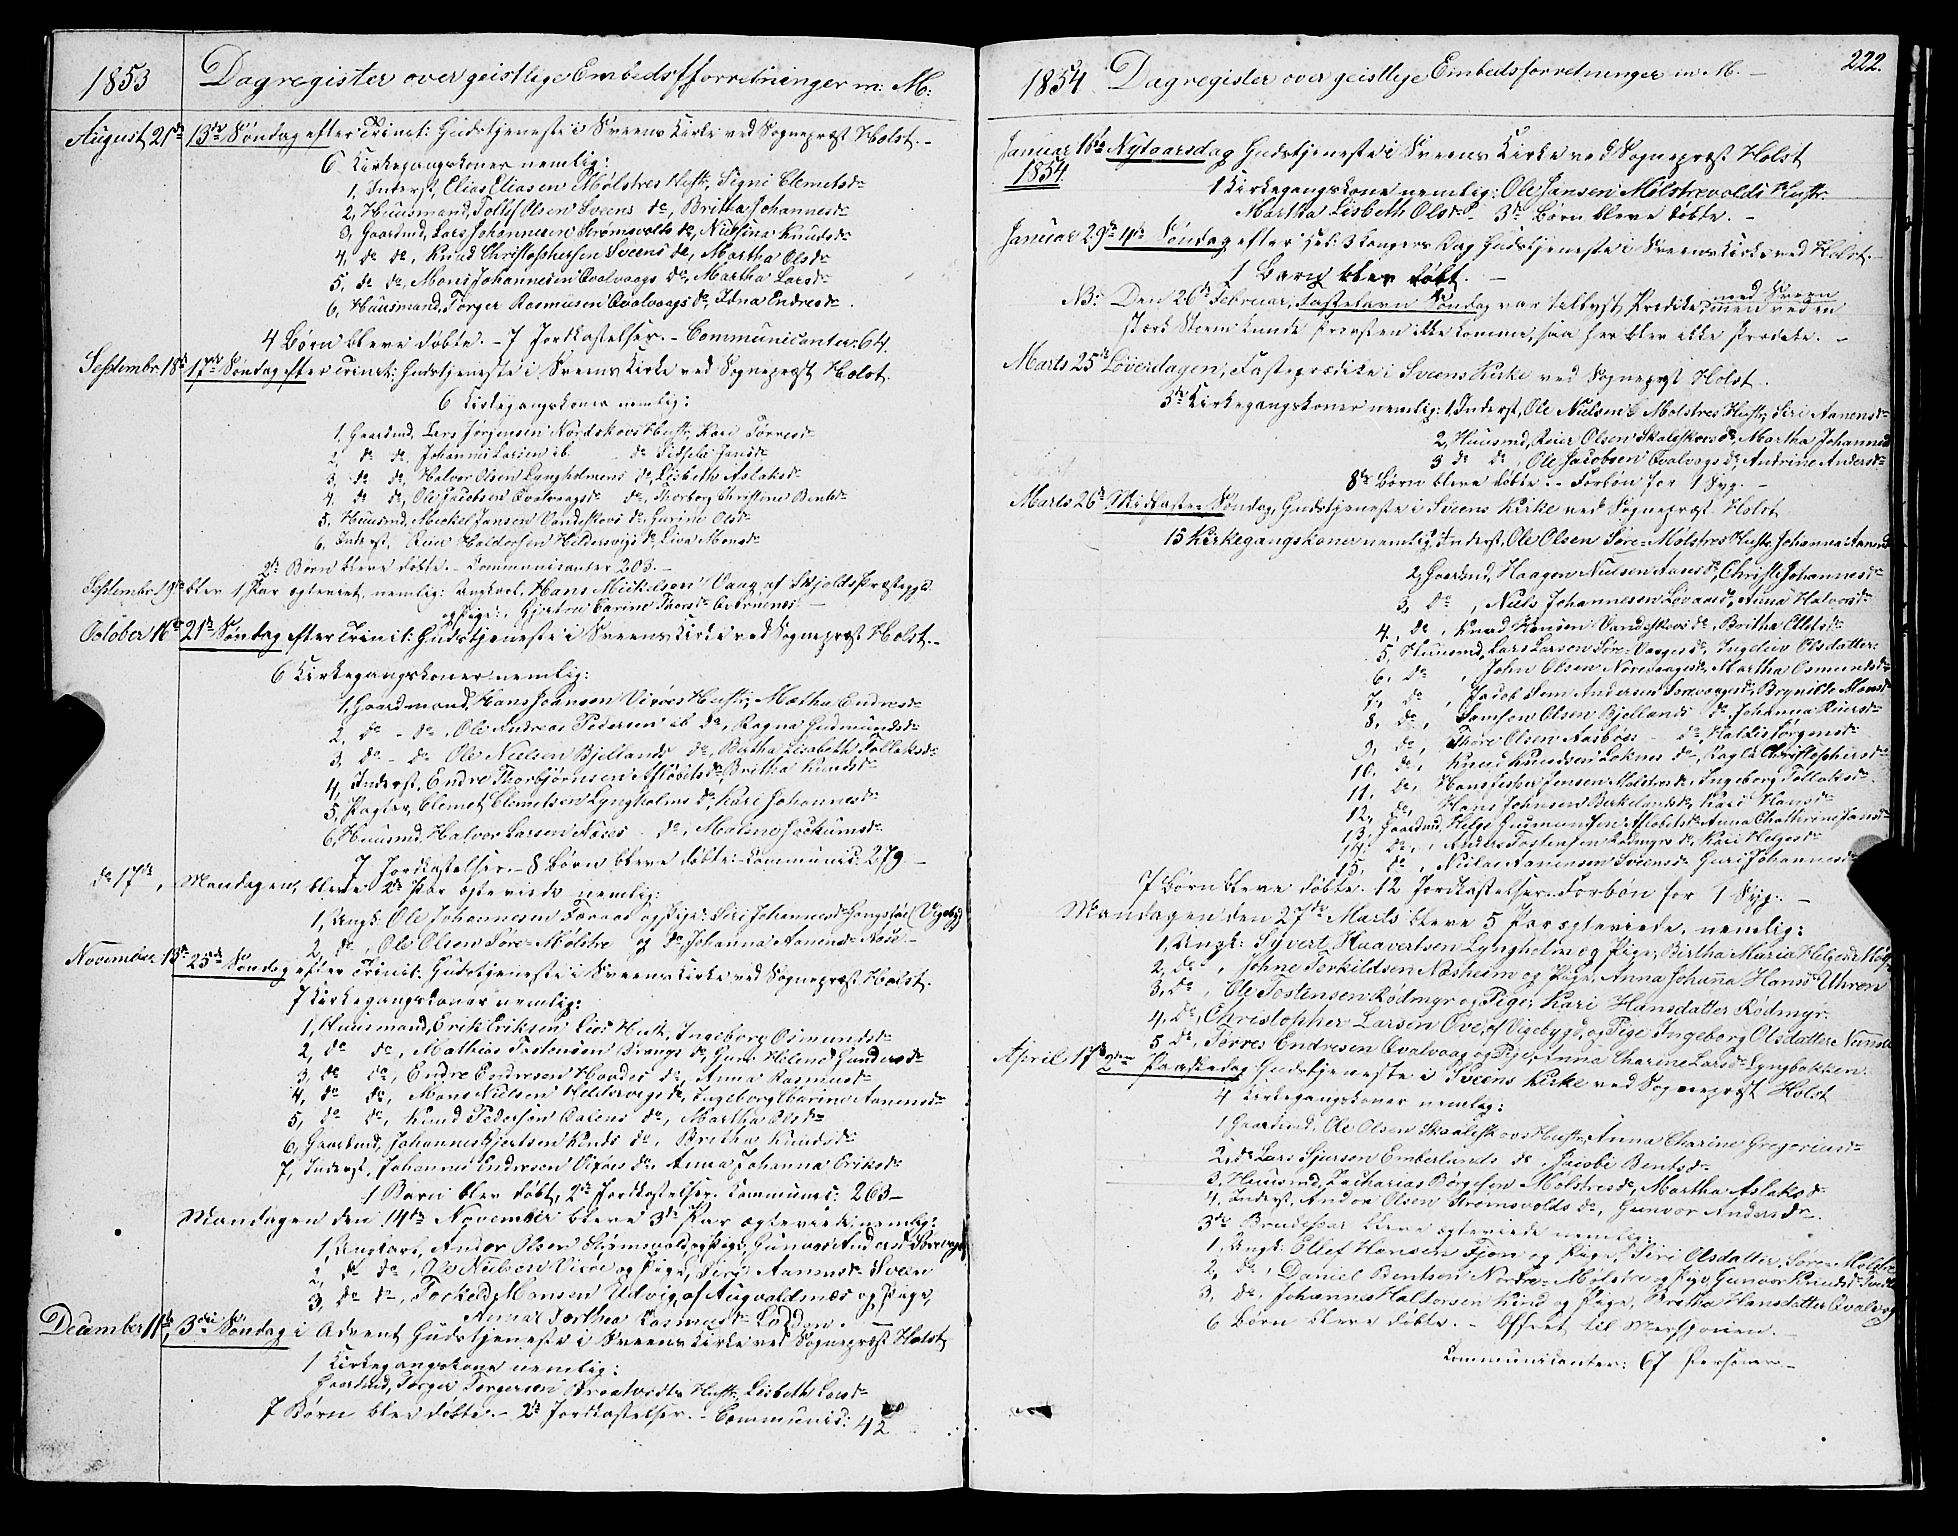 1853
Dagregister over geistlige Embedsforretninger m: M:
August 21de 13de Søndag efter Trinit: Gudstjeneste i Sveens Kirke ved Sognepræst Holst.-
6 Kirkegangskoner nemlig:
1, Inderst, Elias Eliasen Mølstres Hustr, Signi Clemetsdr
2, Huusmand, Tollef Olsen Sveens do, Britha Johannesdr
3, Gaardmd, Lars Johannesen Strømsvolds do, Knudsdr
4, do do, Knud Christophersen Sveens do, Martha Olsdr
5, do do, Mons Johannesen Qvalvaags do, Martha Larsdr
6, Huusmand, Torger Rasmusen Qvalvaags do, Edna Endresdr.
4 Børn bleve døbte.- 7 Jordkastelser.- Communicanter: 64.
Septembr. 18de 17de Søndag efter Trinit: Gudstjeneste i Sveens Kirke ved Sognepræst Holst.
6 Kirkegangskoner nemlig:
1, Gaardmd, Lars Jørgensen Nordskovs Hustr, Kari Torresdr
2, do do, Johannes Larsen ib do Sidsela Jensdr
3, do do, Halvor Olsen Lyngholmens do, Lisbeth Aslaksdr
4, do do, Ole Jacobsen Qvalvaags do, Thorborg Christine Bentsdr
5, Huusmd, Meckel Jansen Vandeskovs do, Gurine Olsdr
6, Inderst, Reier Haldorsen Hildersvigs do, Liva Monsdr
2de Børn bleve døbte.- Communicanter 203.-
Septembr. 19de blev 1 Par egteviet, nemlig: Ungkarl, Hans Mickelsen Vaag af Skjolds Præstegjeld
og Pige:, Gjertru Carine Thorsdr -
October 16de 21de Søndag efter Trinit: Gudstjeneste i Sveens Kirke ved Sognepræst Holst.-
6 Kirkegangskoner nemlig:
1, Gaardmand, Hans Johnsen Virøes Hustr, Mætha Endresdr
2, do - do, Ole Andreas Pedersen ib do, Ragna Gudmundsdr
3, do - do Ole Nielsen Bjellands do, Britha Lisabeth Tollaksdr
4, Inderst, Endre Thorbjørnsen Asløbits do Britha Knudsdr
5, Pagter, Clemet Clemetsen Lyngholms do, Kari Johannesdr
6 Huusmd, Halvor Larsen Naves do, Malene Jochumsdr
7 Jordkastelser.- 8 Børn bleve døbte.- Communic: 279 -
do 17de, Mandagen, bleve 2de Par egteviede nemlig:
1, Ungk: Ole Johannesen Førvaas og Pige: Siri Johannesdr (Vigebygd)
2, do, Ole Olsen Søre-Mølstre og do, Johanna Aanensdr Aase -
November 13de 25de Søndag efter Trinit: Gudstjeneste i Sveens Kirke ved Sognepræst Holst.
7 Kirkegangskoner nemlig:
1, Huusmand, Erik Eriksen Lies Hustr, Ingeborg Osmundsdr
2, do do, Mathias Tostensen Drangs do, Guro Helene Gundersdr
3, do do, Endre Endresen Hovdes do, Anna Rasmusdr
4, do do, Mons Nielsen Hildersvigs do, Ingeborg Carine Aanensdr
5, do do, Knud Pedersen do, Martha Olsdr
6, Gaardmd, Johannes Gjertsen Kinds do, Britha Knudsdr
7, Inderst, Johannes Endresen Virøes do, Anna Johanna Eriksdr
1 Barn blev døbt, 2de Jordkastelser. Communic: 263 -
Mandagen den 14de November bleve 3de Par egteviede nemlig:
1, Ungkarl, Andor Olsen Strømsvold og Pige, Gunvor Andersdr Sørevaage
2, do do, Ole Nielsen Virøe og Pige, Siri Aanensdr Sveen
3, do do, Torkild Monsen Udvig, af Augvaldsnæs og Pige,
Anna Dorthea Rasmusdr Ladden.
December 11te, 3die Søndag i Advent Gudstjeneste i Sveens Kirke ved Sognepræst Holst
1 Kirkegangskone nemlig:
Gaardmd, Torger Torgersen Braatveits Hustr, Lisbeth Larsdr
7 Børn blev døbte.- 2de Jordkastelser.- Communic: 42
1854 Dagregister over geistlige Embedsforretninger m M.-
222.
Januar 1ste Nytaarsdag Gudstjeneste i Sveens Kirke ved Sognepræst Holst
1854
1 Kirkegangskone nemlig: Ole Jansen Mølstrevolds Hustr.
Martha Lisbeth Olsdr.- 3de Børn bleve døbte.-
Januar 29de 4de Søndag efter Hel: 3 Kongers Dag Gudstjeneste i Sveens Kirke ved Holst.-
1 Barn blev døbt.-
NB: Den 26de Februar, Fastelavn Søndag var tillyst Prædiken ved Sveen men ved en
stærk Storm kunde Præsten ikke komme, saa her blev ikke Prædike.-
Marts 25de Løverdagen, Fasteprædike i Sveens Kirke ved Sognepræst Holst.
5de Kirkegangskoner nemlig: 1, Inderst, Ole Nielsen Mølstres Hustr, Siri Aanensdr
2, Huusmd, Reier Olsen Skaleskovs do, Martha Johannesdr
3 do do, Ole Jacobsen Qvalvags do, Andrine Andersdr
8de Børn bleve døbte.- Forbøn for 1 Syg.-
Marts 26de Midfaste-Søndag, Gudstjeneste i Sveens Kirke ved Sognepræst Holst
15 Kirkegangskoner nemlig, 1, Inderst, Ole Olsen Søre-Mølstres Hustr. Johanna Aanensdr
2, Gaardmd, Haagen Nielsen Aases do, Christi Johannesdr
3, do, Niels Johannesen Løvaas do, Anna Halvorsdr
4, do, Knud Hansen Vandeskovs do, Britha Ellefsdr
5, Huusmd, Lars Larsen Søre-Vaages do, Ingeleiv Olsdatter
6, do, John Olsen Norevaages do, Martha Osmundsdr
7, do, Jacob Andersen Sørevaages do, Brynilde Monsdr
8, do, Samson Olsen Bjellands do, Johanna Reiersdr
9, do, Thore Olsen Aasboes - do, Haldis Jørgensdr
10, do, Knud Knudsen Loknes do, Ragla Christophersdr
11, do, Hans Jesper Jensen Mølstres do, Ingeborg Tollaksdr
12, do, Hans Johnsen Birkelands do, Kari Hansdr
13, Gaardmd, Helge Gudmundsen Asløbits do, Anna Chatherine Jansdr
14, do, Anders Tostensen Rødmyrs do, Kari Helgesdr
15, do, Niclas Aanensen Sveens do, Guri Johannesdr
7 Børn bleve døbte. 12 Jordkastelser. Forbøn for 1 Syg.-
Mandagen den 27de Marts bleve 5 Par egteviede, nemlig:
1, Ungk: Syvert Haavertsen Lyngholm og Pige, Birtha Maria Helgesdr
2, do, Johne Torkildsen Næsheim og Pige, Anna Johanna Hansdr Uhren
3, do, Ole Tostensen Rødmyr og Pige, Kari Hansdatter Rødmyr.
4, do, Christopher Larsen Øve, af Vigebygd, og Pige Ingeborg Olsdatter
5 do, Torres Endresen Qvalvaag og Pige, Anna Charine Larsdr Lyngbakken.
April 17de 2den Paaskedag Gudstjeneste i Sveens Kirke ved Sognepræst Holst
4 Kirkegangskoner nemlig:
1, Gaardmd, Ole Olsen Skaaleskovs Hustr, Anna Charine Gregoriusdr
2, do Lars Sjursen Emberlands do Jacobe Bentsdr
3, Huusmd, Zacharias Børgesen Mølstres do, Martha Aslaksdr
4, Inderst, Andor Olsen Strømsvolds do, Gunvor Andersdr.
3de Brudepar bleve egteviede nemlig:
1, Ungk: Ellef Hansen Fjon og Pige, Siri Olsdatter, Søre-Mølstre
2, do, Daniel Bentsen Nordre-Mølstre og Pige Gunvor Knudsdr
3, do, Johannes Haldorsen Kind og Pige, Britha Hansdatter Qvalvog
6 Børn bleve døbte.- Offret til Missionen.-
Communicanter: 67 Personer.-